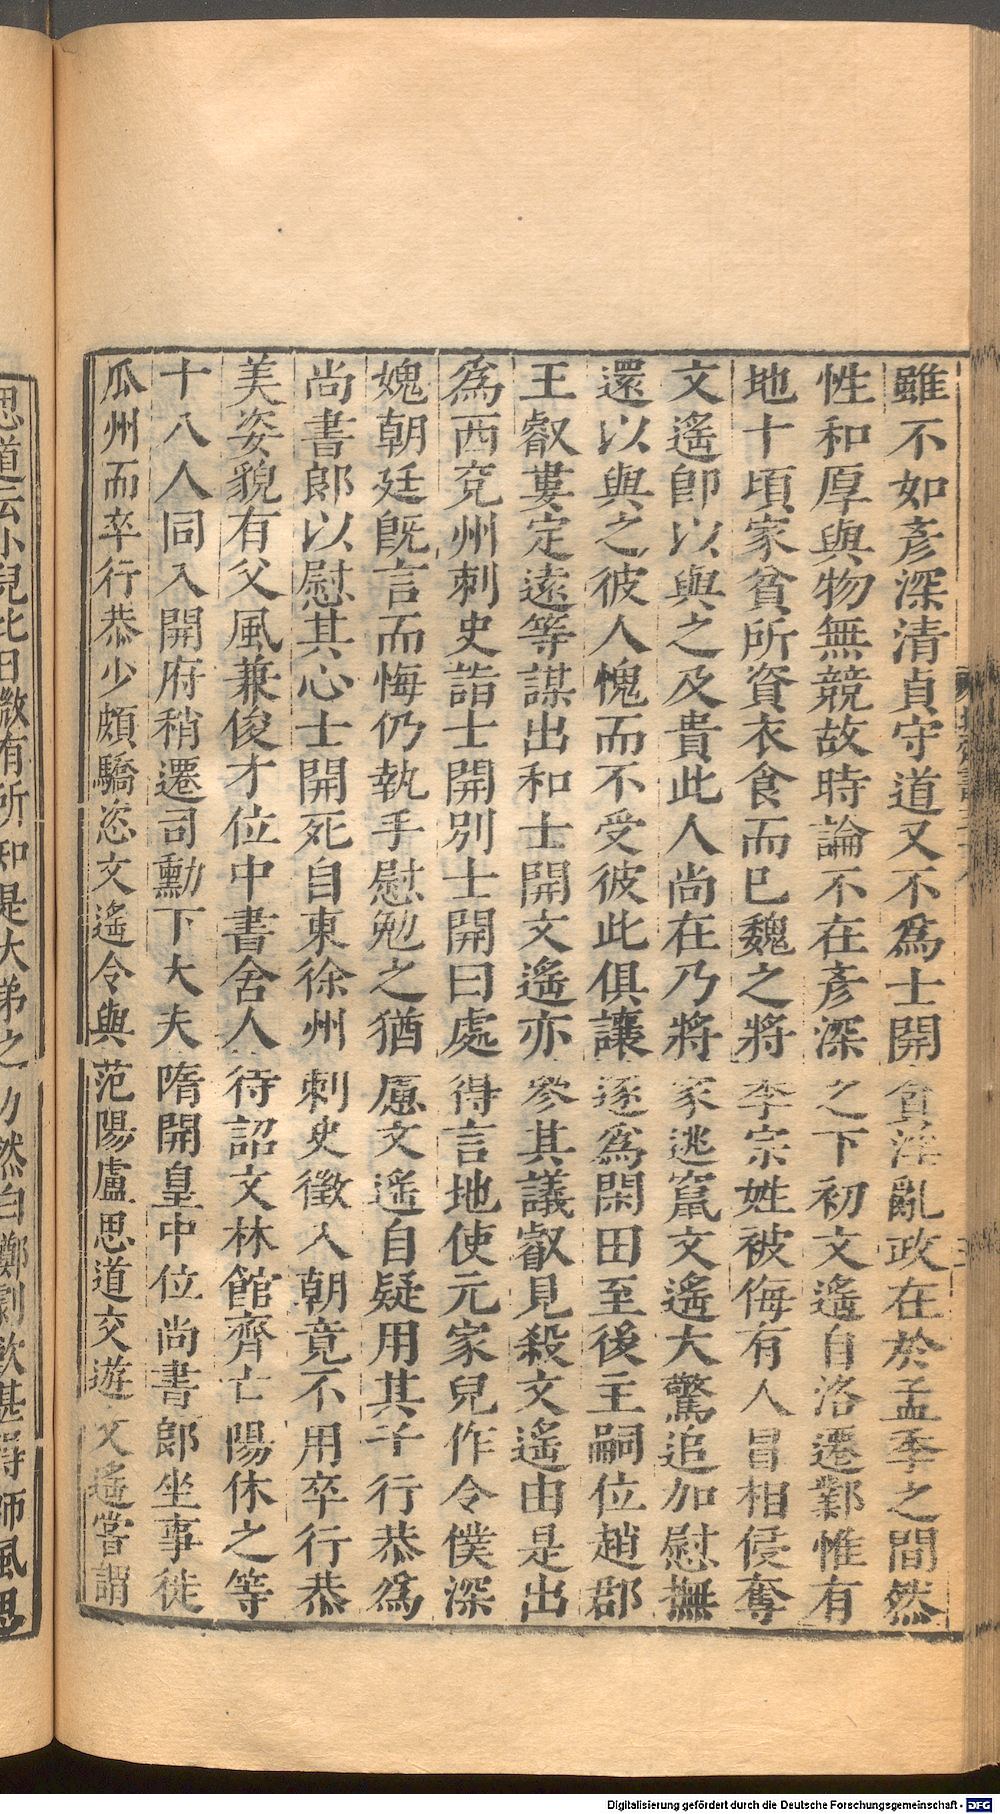 雖不如彥深清貞守道又不爲士開貪淫亂政在於孟季之間然
性和厚與物無競故時論不在彥深之下初文遙自洛遷鄴惟有
地十頃家貧所資衣食而已魏之將季宗姓被侮有人冒相侵奪
文遙卽以與之及貴此人尚在乃將家逃竄文遙大驚追加慰撫
還以與之彼人愧而不受彼此俱讓逐爲閑田至後主嗣位趙郡
王叡婁定遠等謀出和士開文遙亦參其議叡見殺文遙由是出
爲西兗州刺史詣士開別士開曰處得言地使元家兒作令僕深
媿朝廷旣言而悔仍執手慰勉之猶慮文遙自疑用其子行恭爲
尚書郎以慰其心士開死自東徐州刺史徵入朝竟不用卒行恭
美姿貌有父風兼俊才位中書舍人待詔文林館齊亡陽休之等
十八人同入開府稍遷司勳下大夫隋開皇中位尚書郎坐事徙
瓜州而卒行恭少頗驕恣文遙令與范陽盧思道交遊文遙嘗謂
思道云小兒比日微有所知是大弟之力然白擲劇飲甚得師風思
Digitalisierung gefördert durch die Deutsche Forschungsgemeinschaft - DFG